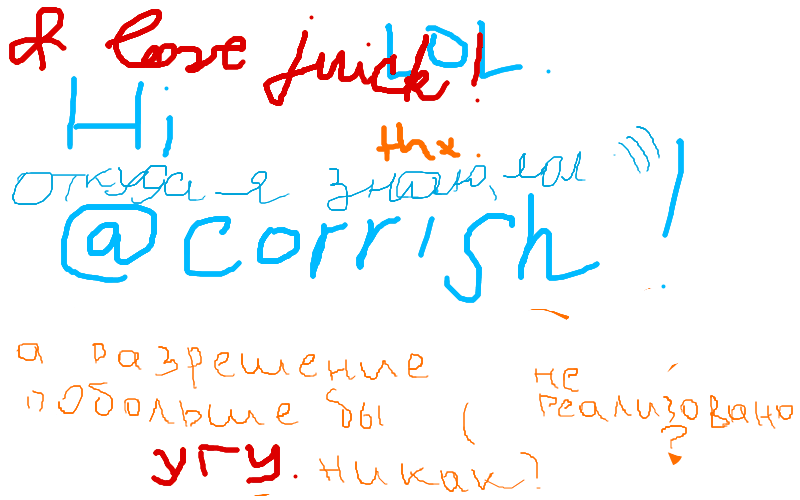 I love juick!
LOL.
Hi
thx.
откуда-я знаю, лол )))
@corrish!
а разрешение
побольше бы (
не
реализовано
?
угу. никак?